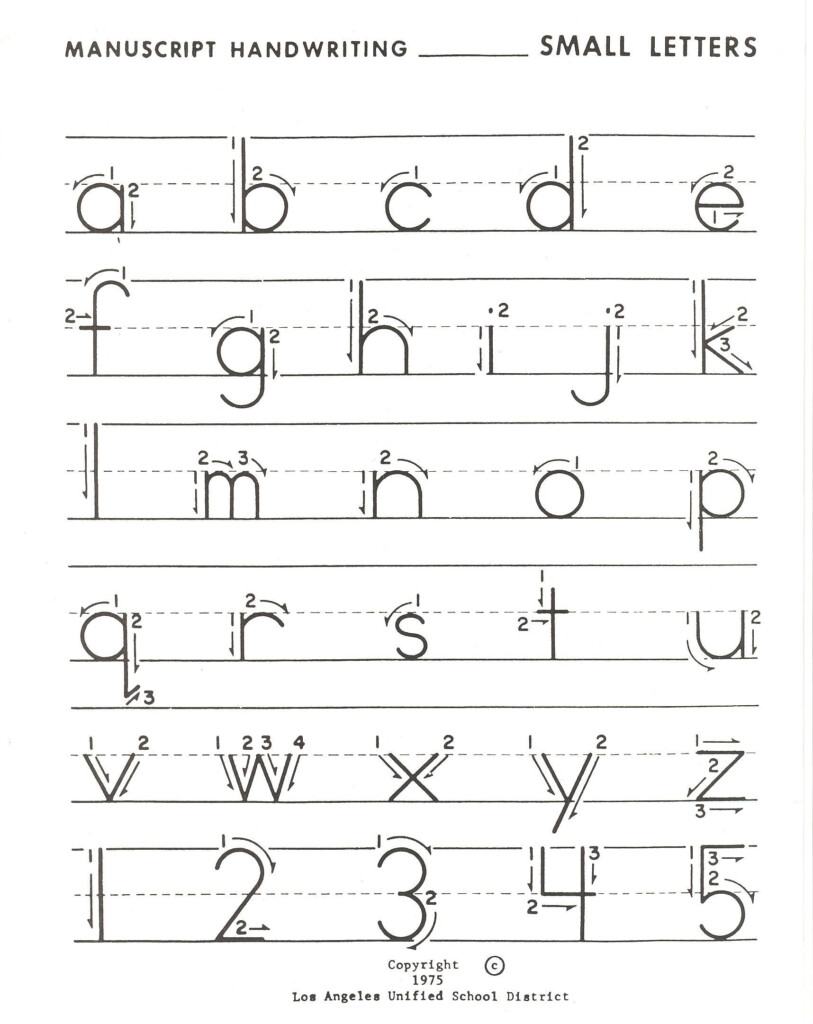 MANUSCRIPT HANDWRITING ________ SMALL LETTERS
1 2 1 2 1 1 2 2 1
a b c d e
1 2 1 2 1 2 2 1 2 1 2 3
f g h i j k
1 2 3 1 2 1 1 2
l m n o p
1 2 3 1 2 1 1 2 1 2
q r s t u
1 2 1 2 3 4 1 2 1 2 1 2 3
v w x y z
1 1 2 1 2 1 2 3 1 2 3
1 2 3 4 5
Copyright ©
1975
Los Angeles Unified School District